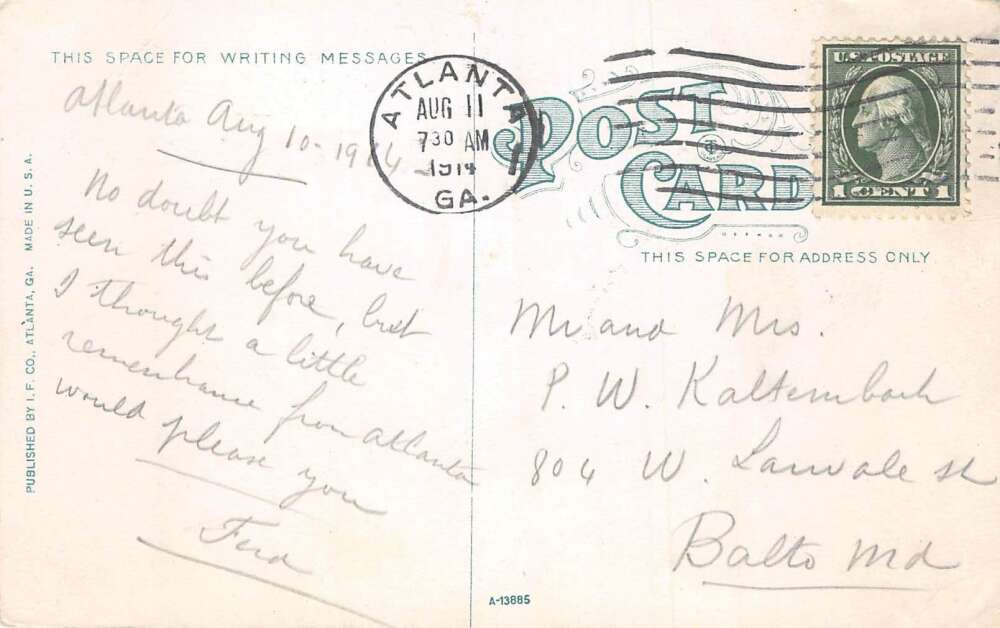 THIS SPACE FOR WRITING MESSAGES
Atlanta Aug 10-1914
No doubt you have
seen this before, but
I thought a little
remembrance from Atlanta
would please you
Ferd
PUBLISHED BY I. F. CO., ATLANTA, GA. MADE IN U. S. A.
ATLANTA
AUG 11
730 AM
1914
GA.
POST
CARD
U.S. POSTAGE
1 CENT 1
THIS SPACE FOR ADDRESS ONLY
Mr and Mrs.
P. W. Kaltenbach
804 W. Lanvale st
Balto Md
A-13885